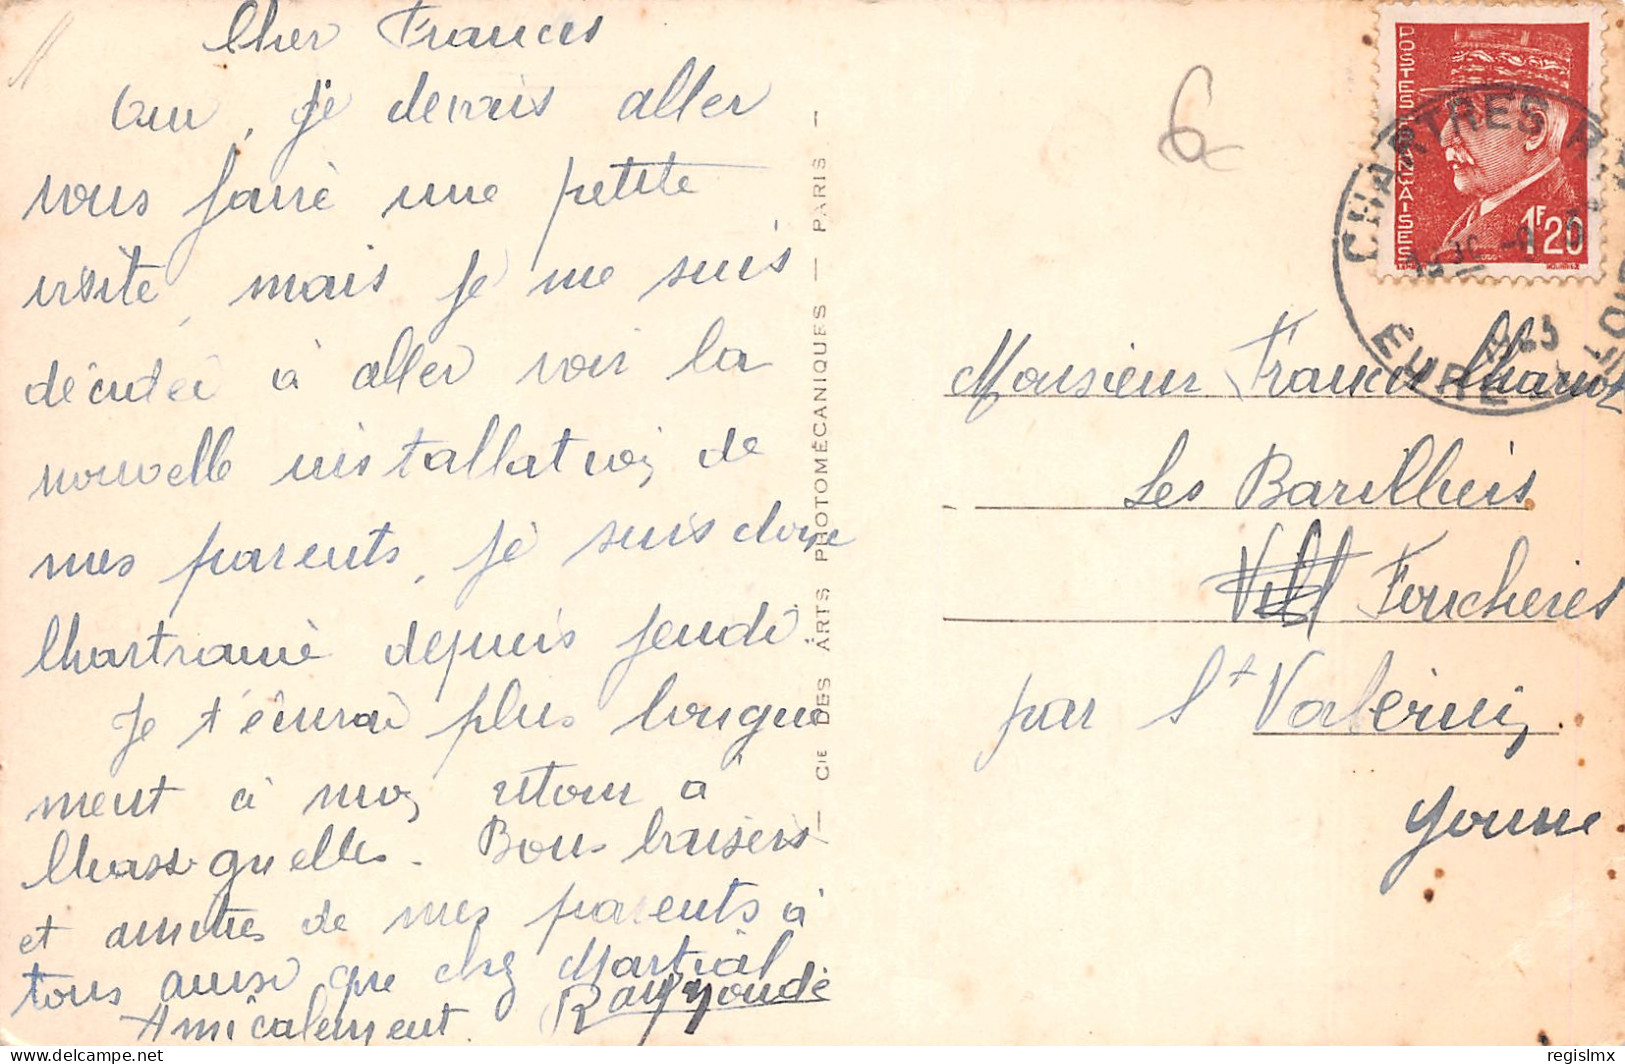 Cher Francis
Oui, je devais aller
vous faire une petite
visite, mais je me suis
décidée à aller voir la
nouvelle installation de
mes parents, je suis donc
Chartraine depuis jeudi
Je t'écrirai plus longue
ment à mon retour à
Bons baisers
et amitiés de mes parents à
tous ainsi que chez Martial
Amicalement. Raymonde
CIE DES ARTS PHOTOMÉCANIQUES — PARIS —
6
POSTES FRANÇAISES
1F20
CHARTRES
EURE
Monsieur Francis
Les Barilliers
Foucheres
par St Valerien
Yonne
regislmx